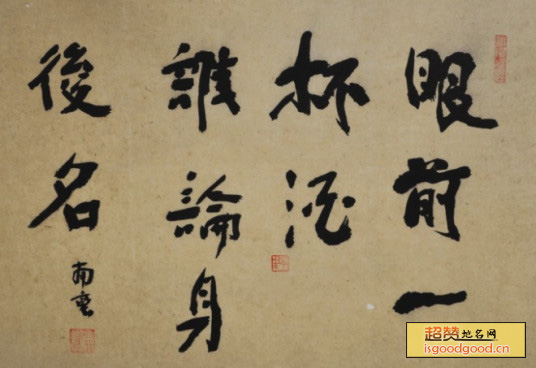 眼前一
杯酒
誰論身
後名
南雲
超赞地名网
isgoodgood.cn